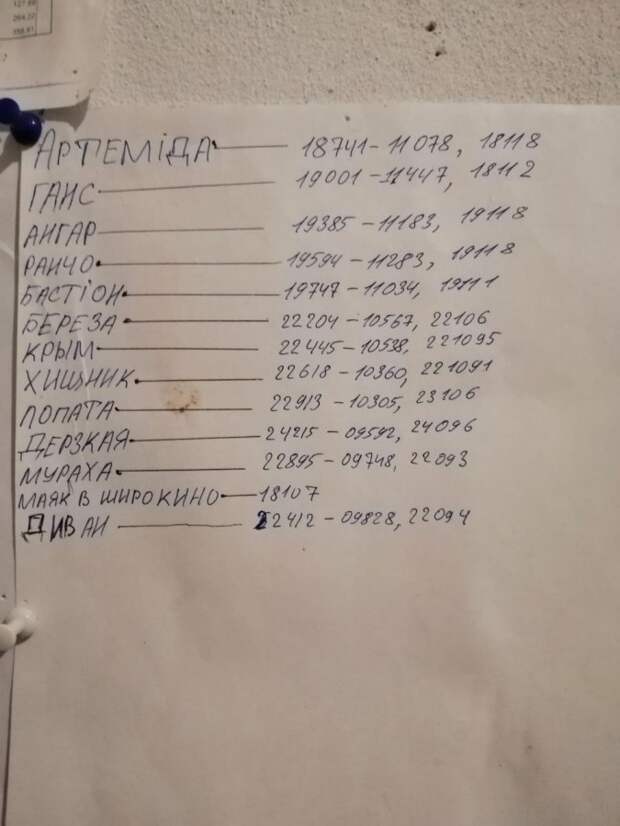 127.89
264.22
358.81
АРТЕМІДА — 18741-11078, 18118
ГАИС — 19001-11447, 18112
АИГАР — 19385-11183, 19118
РАИЧО — 19594-11283, 19118
БАСТІОН — 19747-11034, 19111
БЕРЕЗА — 22204-10567, 22106
КРЫМ — 22445-10538, 221095
ХИЩНИК — 22618-10360, 221091
ЛОПАТА — 22913-10305, 23106
ДЕРЗКАЯ — 24215-09592, 24096
МУРАХА — 22895-09748, 22093
МАЯК В ШИРОКИНО — 18107
ДИВАИ — 22412-09828, 22094